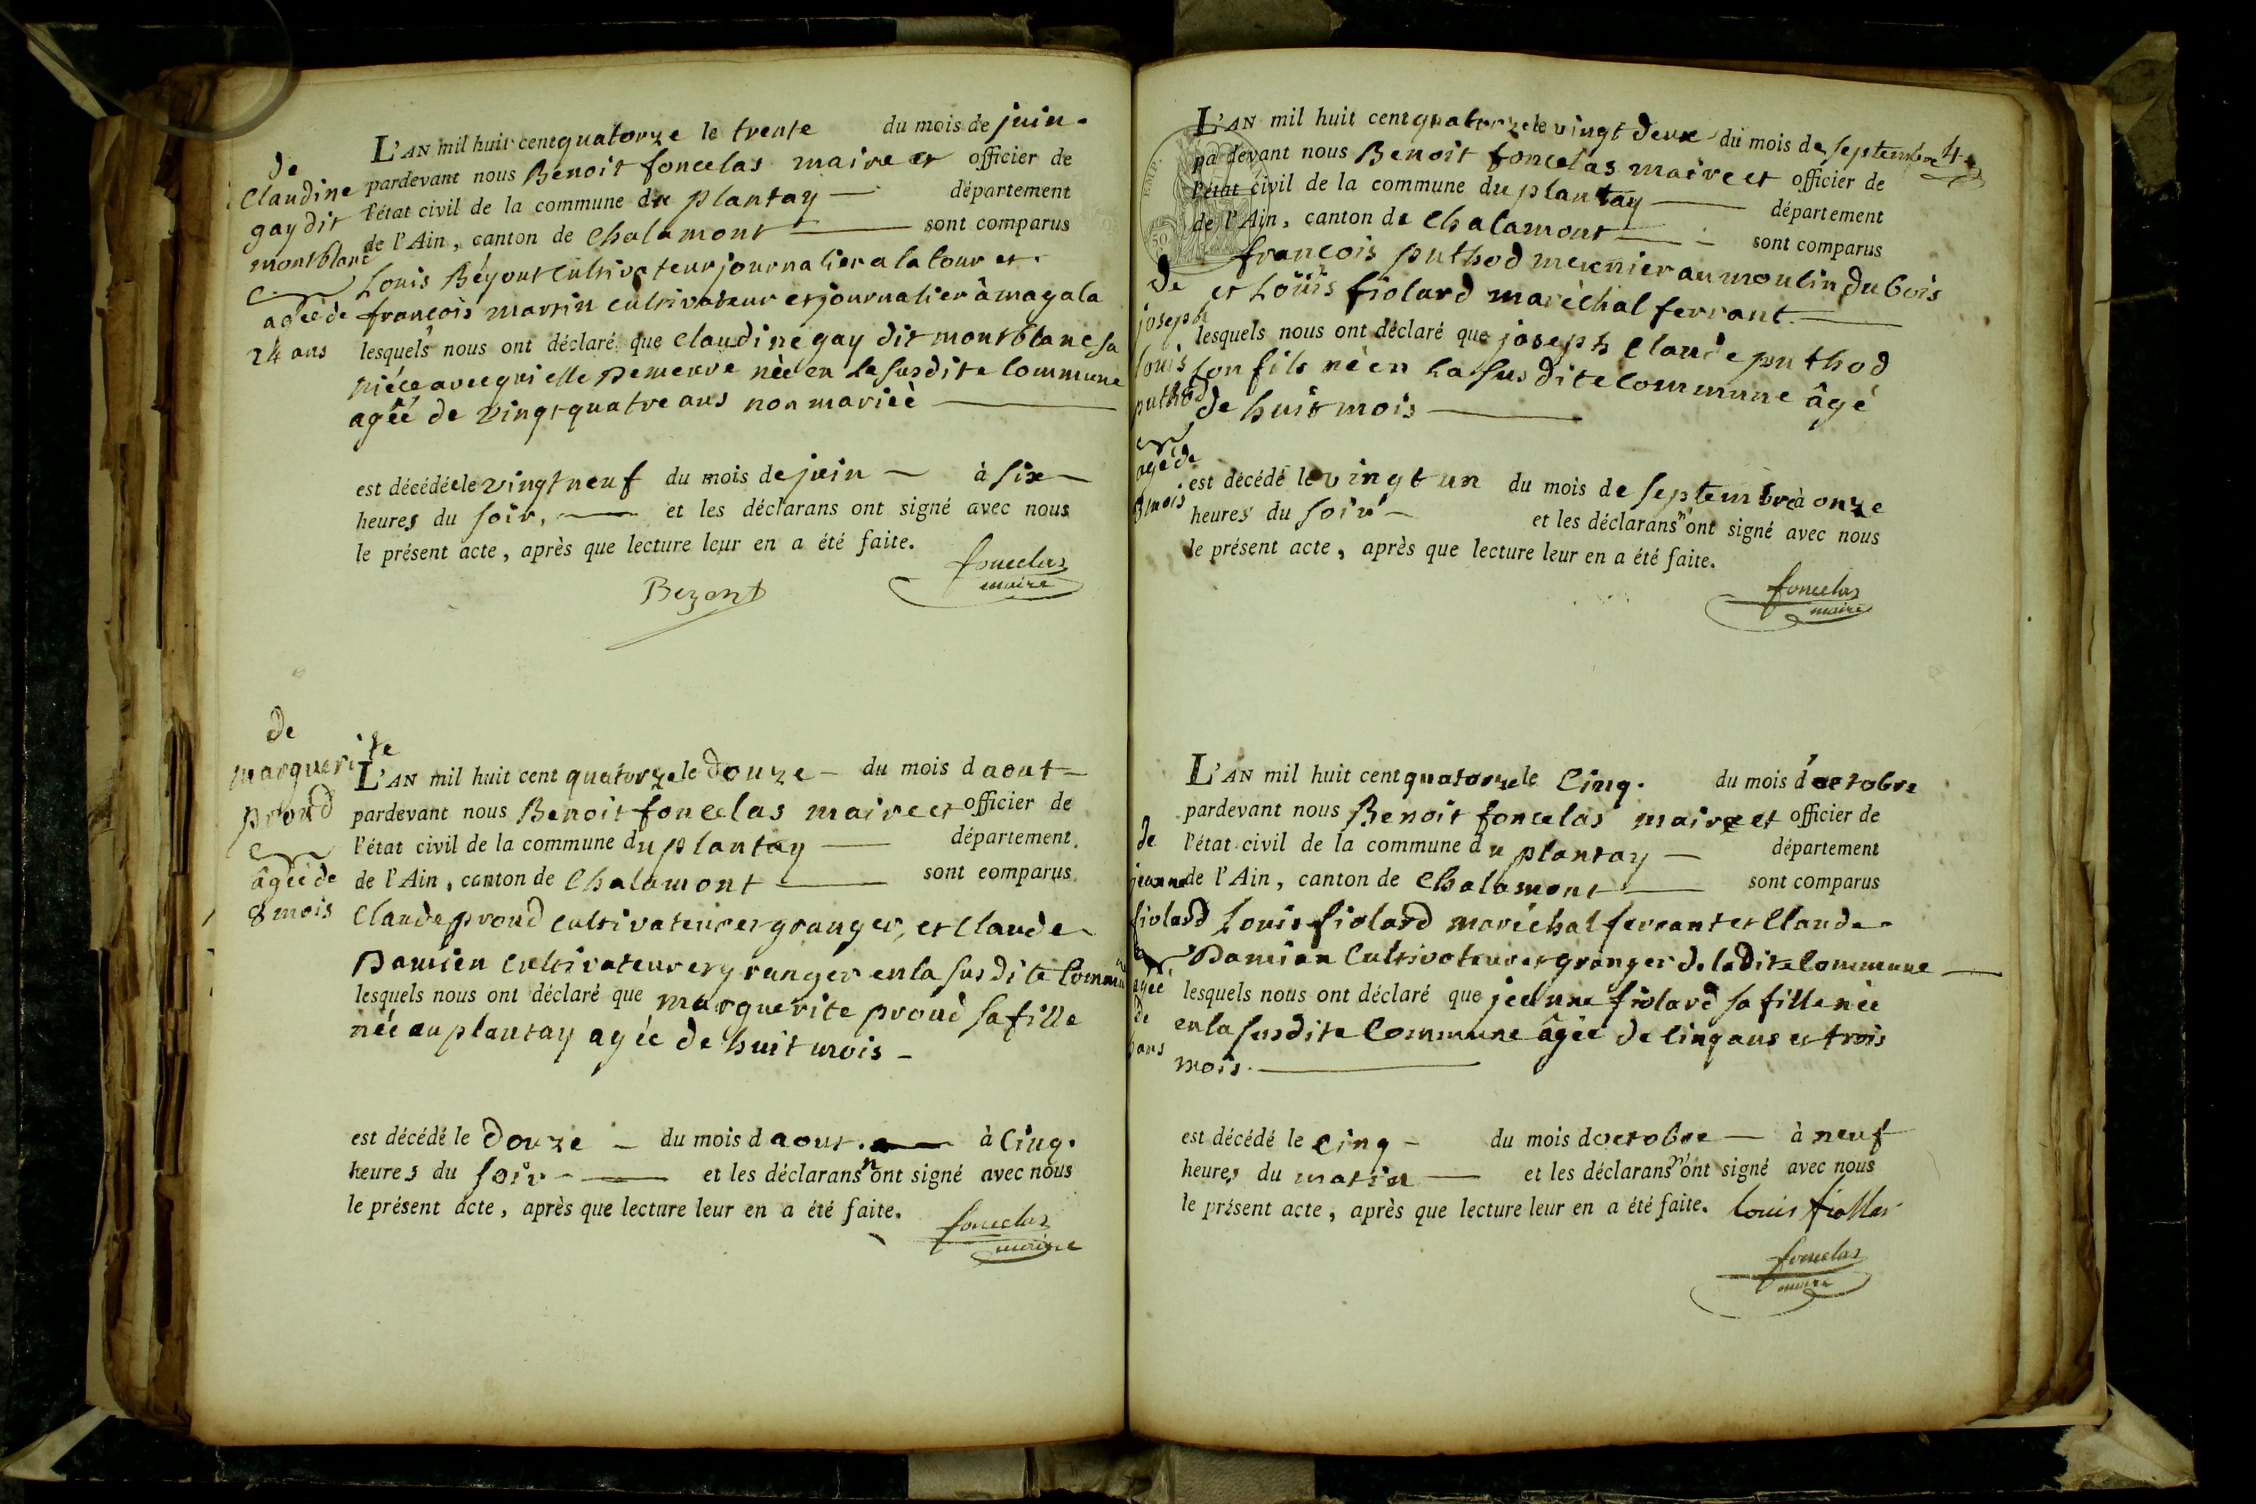 de
Claudine
gay dit
montblanc
agéé de
24 ans
L'AN mil huit cent quatorze le trente du mois de juin.
pardevant nous Benoit foncelas maire et officier de
l'état civil de la commune du plantay département
de l'Ain, canton de Chalamont sont comparus
Louis Béyout Cultivateur journalier a la tour et
françois martin cultivateur et journalier à magala
lesquels nous ont déclaré que Claudine gay dit montblanc sa
niéce avec qui elle demeure néé en la susdite Commune
agéé de vingt quatre ans non mariéé
est décédée le vingt neuf du mois de juin à six
heures du soir, et les déclarans ont signé avec nous
le présent acte, après que lecture leur en a été faite.
foncelas
maire
Bezont
de
marguerite
proud
âgéé de
8 mois
L'AN mil huit cent quatorze le douze du mois d aout
pardevant nous Benoit foncelas maire et officier de
l'état civil de la commune du plantay département
de l'Ain, canton de Chalamont sont comparus
Claude proud cultivateur et granger, et Claude
Damien Cultivateur et granger en la susdite Commune
lesquels nous ont déclaré que marguerite proud sa fille
néé au plantay agéé de huit mois
est décédé le douze du mois d aout. à Cinq.
heures du soir et les déclarans n'ont signé avec nous
le présent acte, après que lecture leur en a été faite.
foncelas
maire
4
de
joseph
louis
puthod
agé de
8 mois
L'AN mil huit cent quatorze le vingt deux du mois de septembre
pardevant nous Benoit foncelas maire et officier de
l'état civil de la commune du plantay département
de l'Ain, canton de Chalamont sont comparus
françois puthod meunier au moulin du bois
et Loüis fiolard maréchal ferrant.
lesquels nous ont déclaré que joseph Claude puthod
son fils né en la susdite Commune âgé
de huit mois
est décédé le vingt un du mois de septembre à onze
heures du soir et les déclarans n'ont signé avec nous
le présent acte, après que lecture leur en a été faite.
foncelas
maire
de
jeanne
fiolard
agéé
de
5 ans
L'AN mil huit cent quatorze le Cinq. du mois d'octobre
pardevant nous Benoit foncelas maire et officier de
l'état civil de la commune du plantay département
de l'Ain, canton de Chalamont sont comparus
Louis fiolard maréchal ferrant et Claude
Damian Cultivateur et granger de ladite Commune
lesquels nous ont déclaré que jeanne fiolard sa fille néé
en la susdite Commune âgéé de Cinq ans et trois
mois.
est décédé le Cinq du mois d octobre à neuf
heures du matin et les déclarans n'ont signé avec nous
le présent acte, après que lecture leur en a été faite. Louis fiollar
foncelas
maire